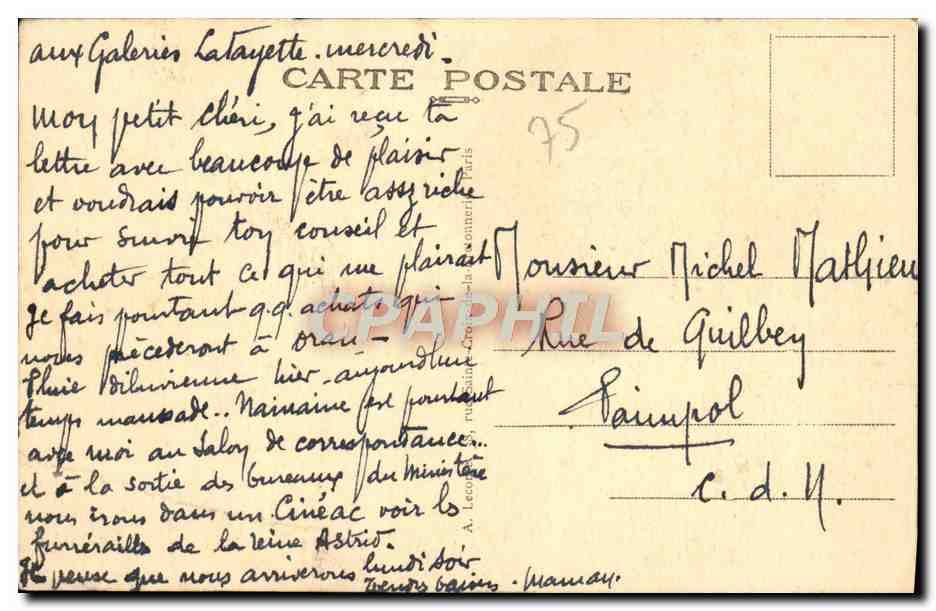 aux Galeries Lafayette. mercredi.
CARTE POSTALE
75
Mon petit chéri, j'ai reçu ta
lettre avec beaucoup de plaisir
et voudrais pouvoir être assz riche
pour suivre ton conseil et
acheter tout ce qui me plairait
Je fais pourtant q.q. achats qui
nous précéderont à Oran -
Pluie diluvienne hier - aujourd'hui
temps maussade.. Nainaine est pourtant
avec moi au salon de correspondance...
et à la sortie des bureaux du Ministère
nous irons dans un Cinéac voir les
funérailles de la reine Astrid.
Je pense que nous arriverons lundi soir
Tendres baisers - Maman.
A. Leconte, rue Sainte-Croix-de-la-Bretonnerie, Paris
Monsieur Michel Mathieu
Rue de Guilbey
Paimpol
C. d. N.
CPAPHIL